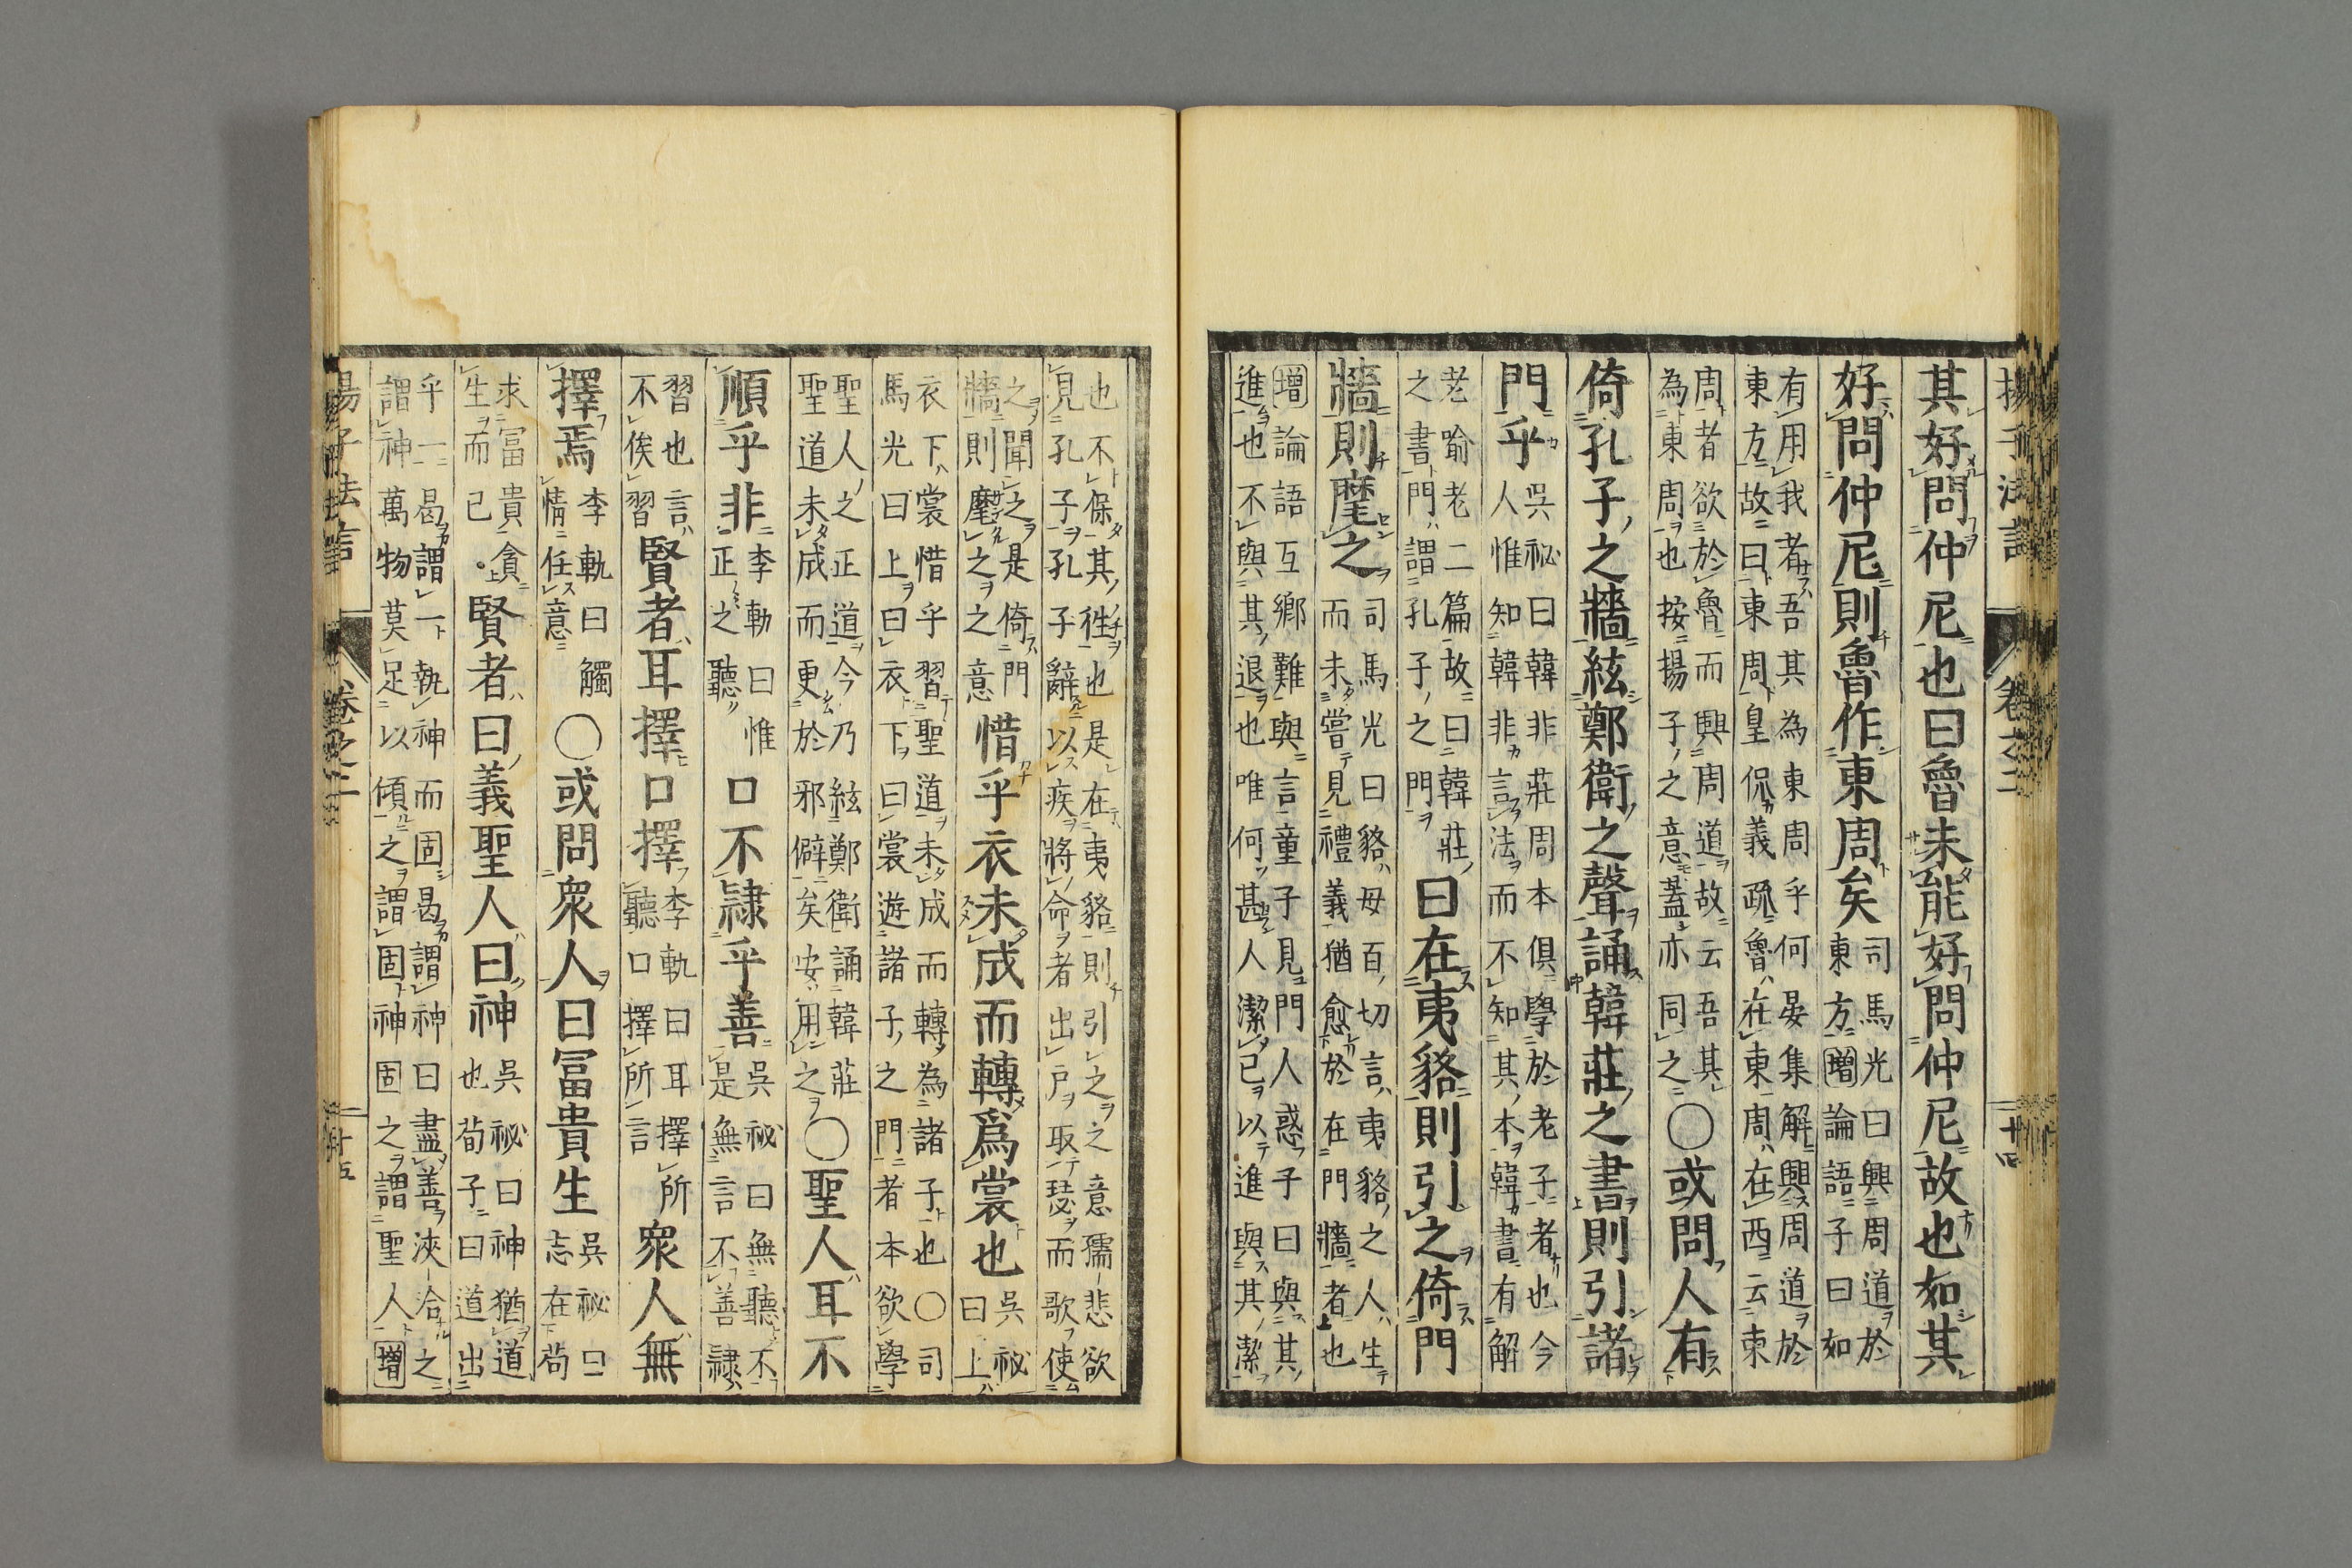 揚子法言 卷之二 二十四
其好問仲尼也曰魯未能好問仲尼故也如其
好問仲尼則魯作東周矣司馬光曰興周道於東方增論語子曰如
有用我者吾其為東周乎何晏集解興周道於東方故曰東周皇侃義疏魯在東周在西云東
周者欲於魯而興周道故云吾其為東周也按揚子之意蓋亦同之〇或問人有
倚孔子之牆絃鄭衛之聲誦韓莊之書則引諸
門乎吳祕曰韓非莊周本俱學於老子者也今人惟知韓非言法而不知其本韓書有解
老喻老二篇故曰韓莊之書門謂孔子之門曰在夷貉則引之倚門
牆則麾之司馬光曰貉母百切言夷貉之人生而未嘗見禮義猶愈於在門牆者也
增論語互鄉難與言童子見門人惑子曰與其進也不與其退也唯何甚人潔已以進與其潔
也不保其徃也是在夷貉則引之之意孺悲欲見孔子孔子辭以疾將命者出戶取瑟而歌使
之聞之是倚門牆則麾之之意惜乎衣未成而轉爲裳也吳祕曰上
衣下裳惜乎習聖道未成而轉為諸子也〇司馬光曰上曰衣下曰裳遊諸子之門者本欲學
聖人之正道今乃絃鄭衛誦韓莊聖道未成而更於邪僻矣安用之〇聖人耳不
順乎非李軌曰惟正之聽口不隷乎善吳祕曰無聽不是無言不善隷
習也言不俟習賢者耳擇口擇李軌曰耳擇所聽口擇所言衆人無
擇焉李軌曰觸情任意〇或問衆人曰冨貴生吳祕曰志在苟
求冨貴貪生而已賢者曰義聖人曰神吳祕曰神猶道也荀子曰道出
乎一曷謂一執神而固曷謂神曰盡善浹洽之謂神萬物莫足以傾之謂固神固之謂聖人增
揚子法言 卷之二 二十五